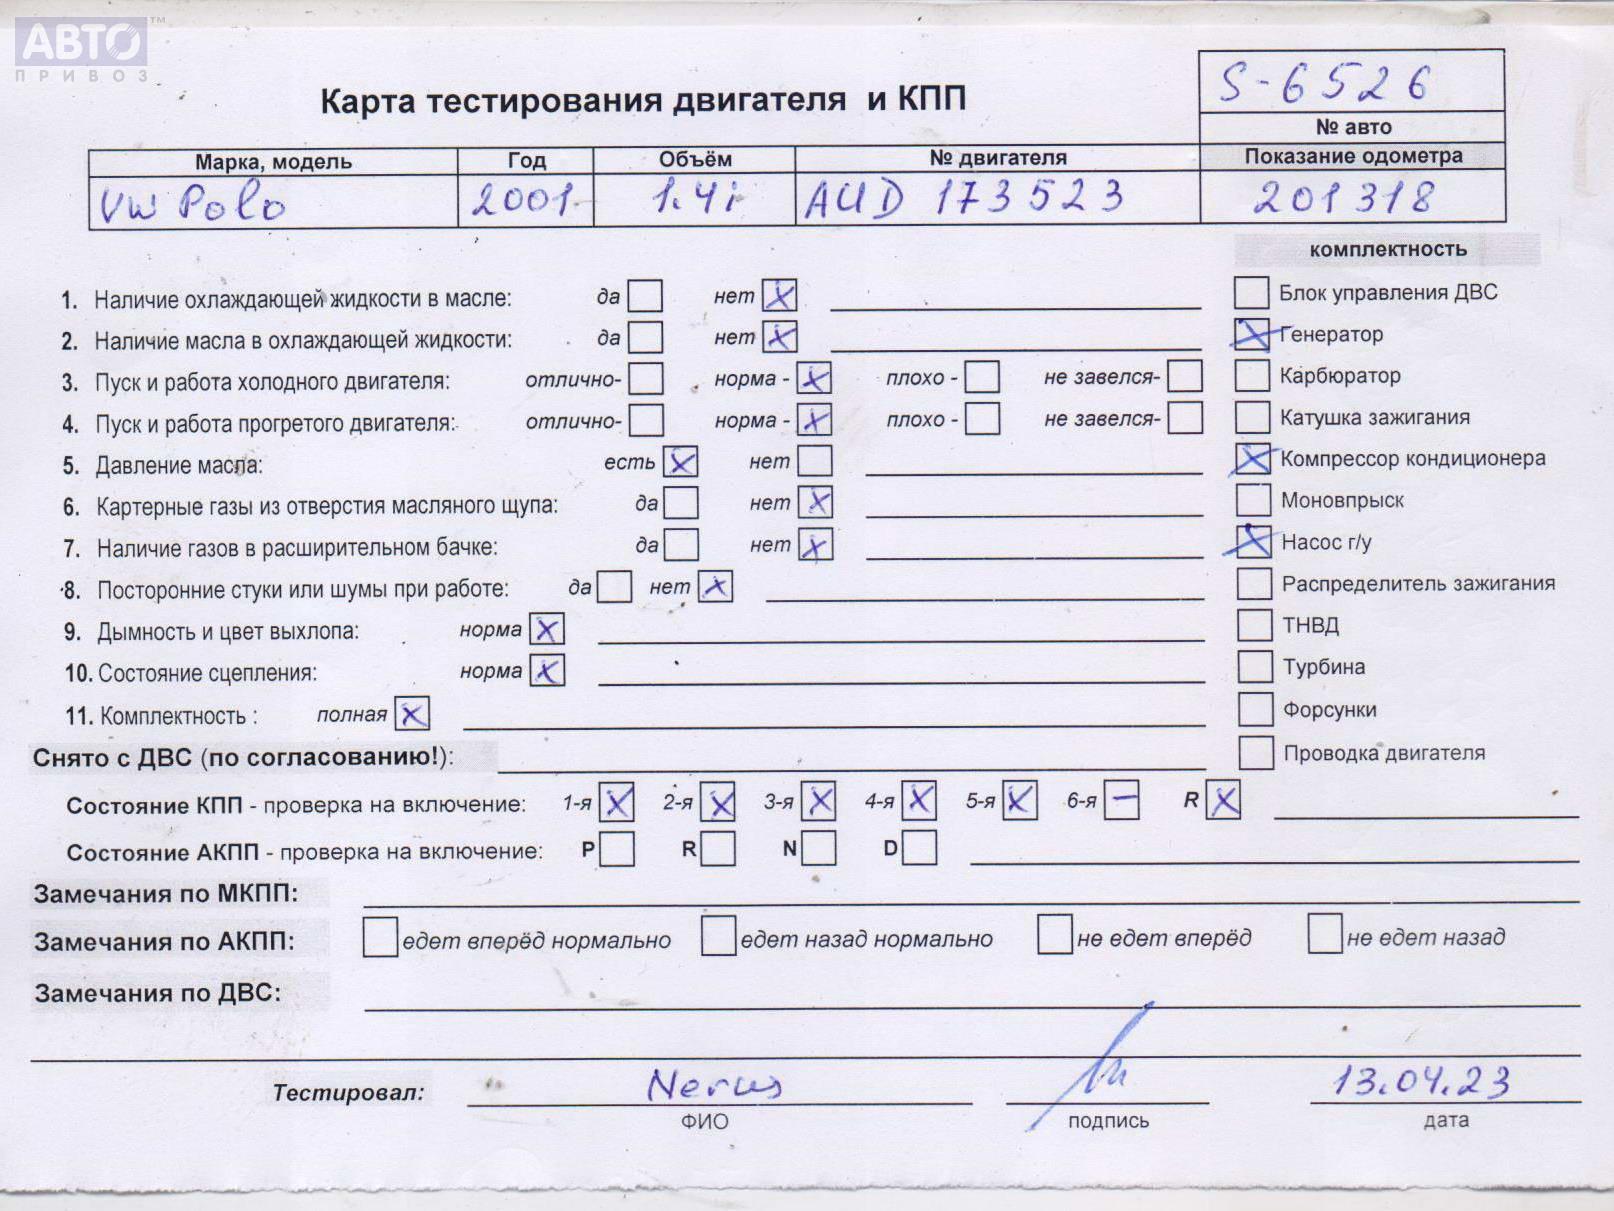 АВТО™
ПРИВОЗ
Карта тестирования двигателя и КПП
S-6526
№ авто
Марка, модель Год Объём № двигателя Показание одометра
VW Polo 2001 1.4i AUD 173523 201318
комплектность
1. Наличие охлаждающей жидкости в масле: да нет X
Блок управления ДВС
2. Наличие масла в охлаждающей жидкости: да нет X
X Генератор
3. Пуск и работа холодного двигателя: отлично- норма - X плохо - не завелся-
Карбюратор
4. Пуск и работа прогретого двигателя: отлично- норма - X плохо - не завелся-
Катушка зажигания
5. Давление масла: есть X нет
X Компрессор кондиционера
6. Картерные газы из отверстия масляного щупа: да нет X
Моновпрыск
7. Наличие газов в расширительном бачке: да нет X
X Насос г/у
8. Посторонние стуки или шумы при работе: да нет X
Распределитель зажигания
9. Дымность и цвет выхлопа: норма X
ТНВД
10. Состояние сцепления: норма X
Турбина
11. Комплектность : полная X
Форсунки
Снято с ДВС (по согласованию!):
Проводка двигателя
Состояние КПП - проверка на включение: 1-я X 2-я X 3-я X 4-я X 5-я X 6-я – R X
Состояние АКПП - проверка на включение: P R N D
Замечания по МКПП:
Замечания по АКПП: едет вперёд нормально едет назад нормально не едет вперёд не едет назад
Замечания по ДВС:
Тестировал: 13.04.23
ФИО подпись дата